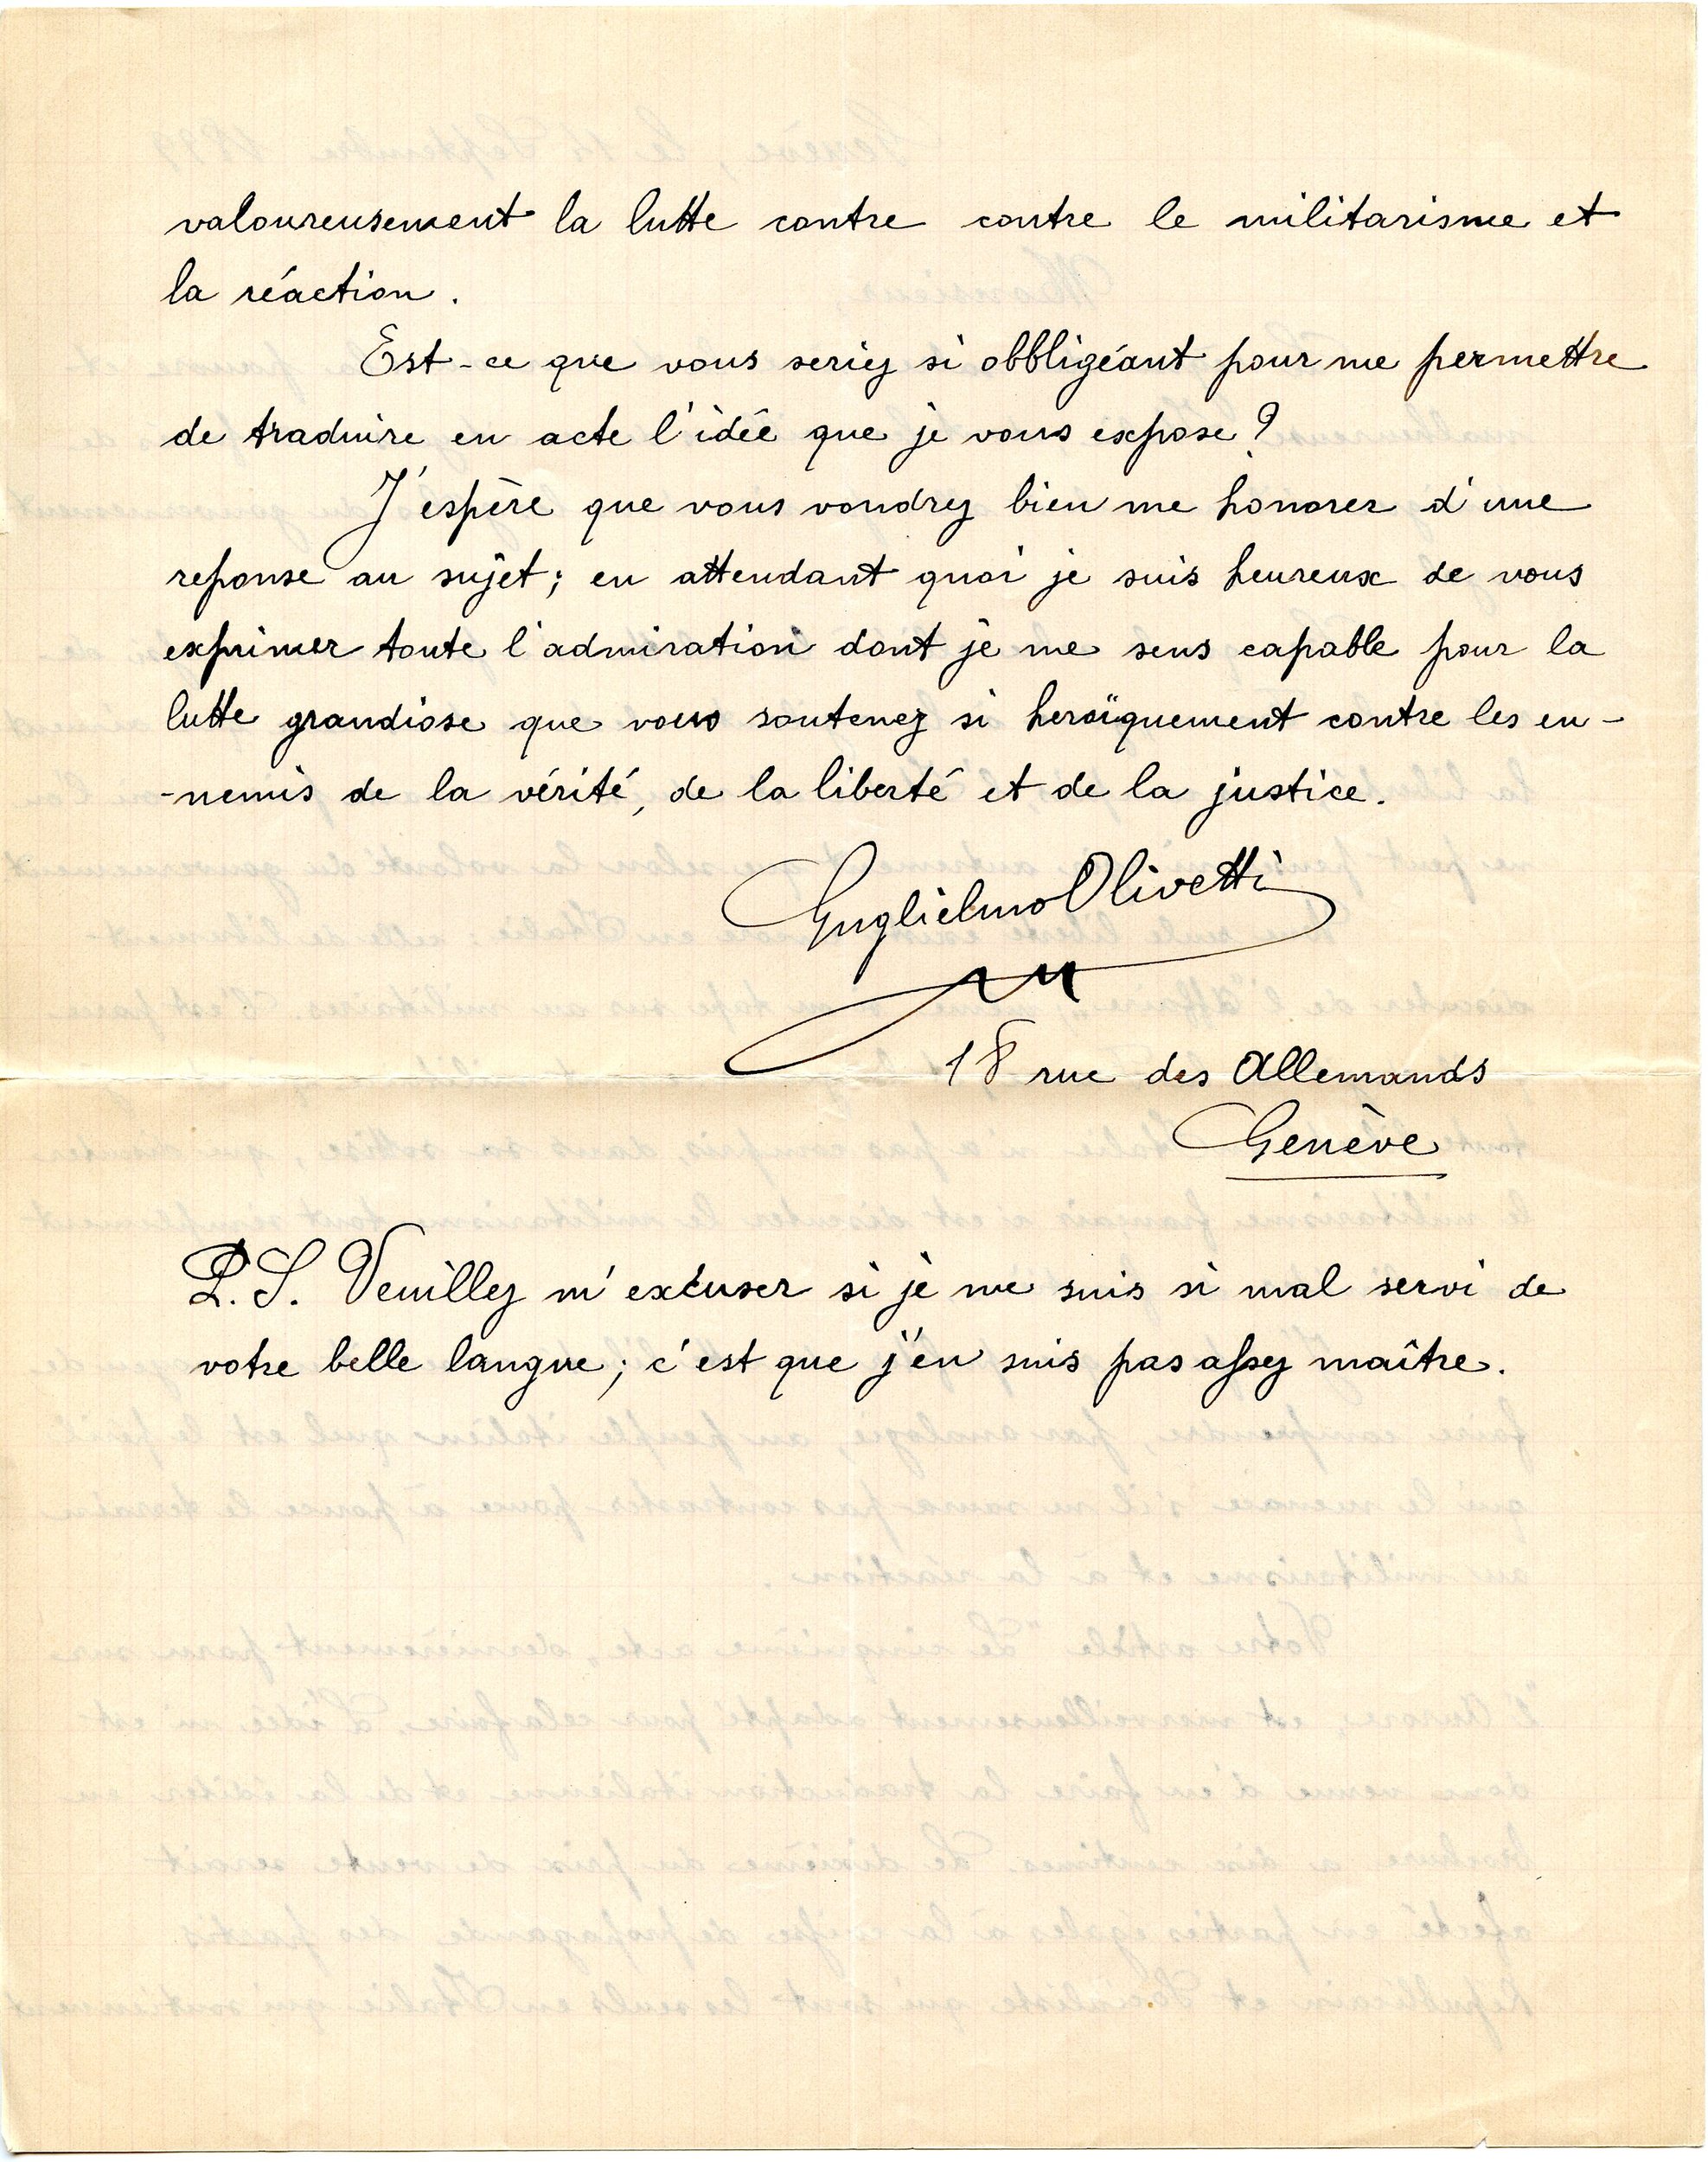 valoureusement la lutte contre contre le militarisme et
la réaction.
Est-ce que vous seriez si obbligéant pour me permettre
de traduire en acte l'idée que je vous expose?
J'espère que vous voudrez bien me honorer d'une
reponse au sujet; en attendant quoi je suis heureux de vous
exprimer toute l'admiration dont je me sens capable pour la
lutte grandiose que vous soutenez si heroïquement contre les en-
-nemis de la vérité, de la liberté et de la justice.
Guglielmo Olivetti
18 rue des Allemands
Genève
P.S. Veuillez m'excuser si je me suis si mal servi de
votre belle langue; c'est que j'en suis pas assez maître.